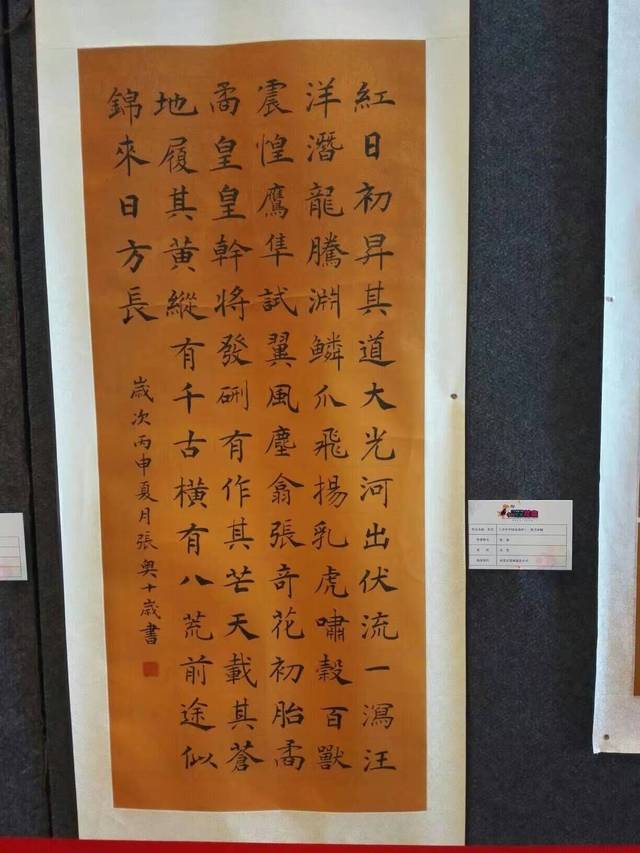 紅日初昇其道大光河出伏流一瀉汪
洋潛龍騰淵鱗爪飛揚乳虎嘯穀百獸
震惶鷹隼試翼風塵翕張奇花初胎矞
矞皇皇幹將發硎有作其芒天載其蒼
地履其黃縱有千古橫有八荒前途似
錦來日方長
歲次丙申夏月張奧十歲書